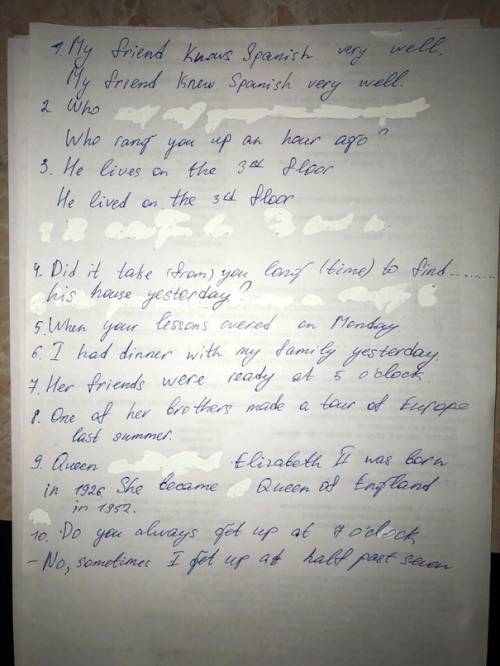 1. My friend knows Spanish very well.
My friend knew Spanish very well.
2. Who
Who rang you up an hour ago?
3. He lives on the 3rd floor
He lived on the 3rd floor
4. Did it take (from) you long (time) to find.........
his house yesterday?
5. When your lessons overed on Monday.
6. I had dinner with my family yesterday.
7. Her friends were ready at 5 o'clock.
8. One of her brothers made a tour of Europe
last summer.
9. Queen Elizabeth II was born
in 1926. She became Queen of England
in 1952.
10. Do you always get up at 7 o'clock
- No, sometimes I get up at half past seven